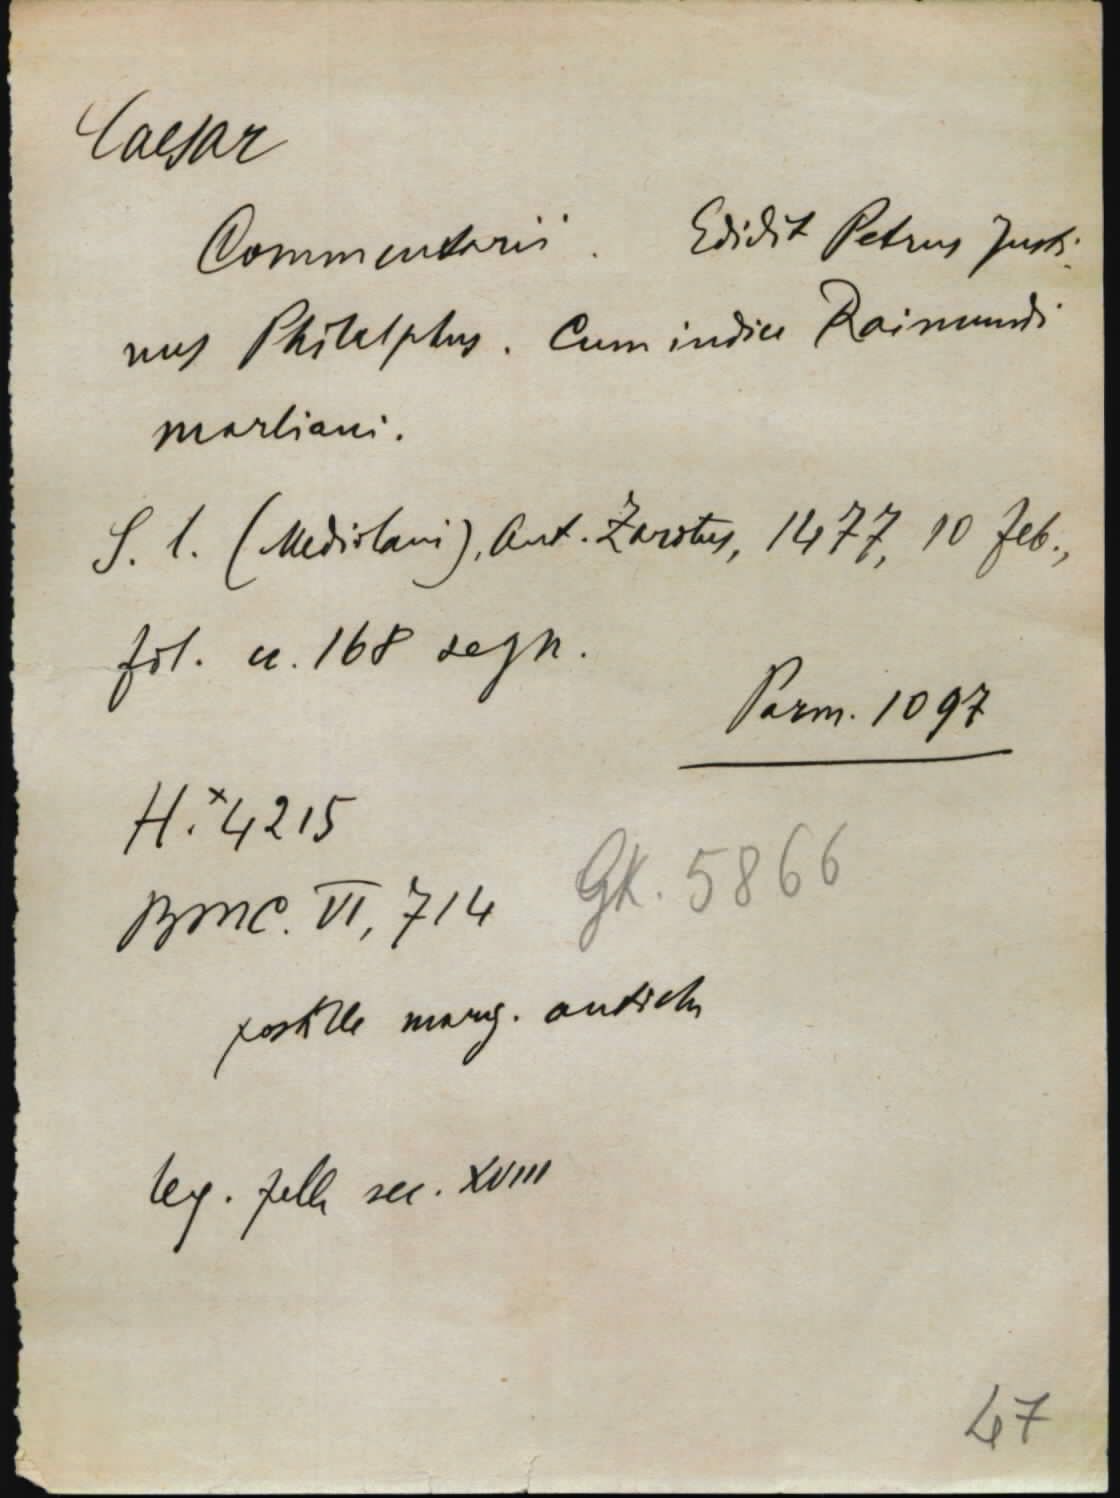 Caesar
Commentarii. Edidit Petrus Justi-
nus Philelphus. Cum indice Raimundi
Marliani.
S. l. (Mediolani), Ant. Zarotus, 1477, 10 Feb.,
fol. cc. 168 segn.
Parm. 1097
H.*4215
BMC. VI, 714
GK. 5866
postille marg. antiche
leg. pelle sec. XVIII
47